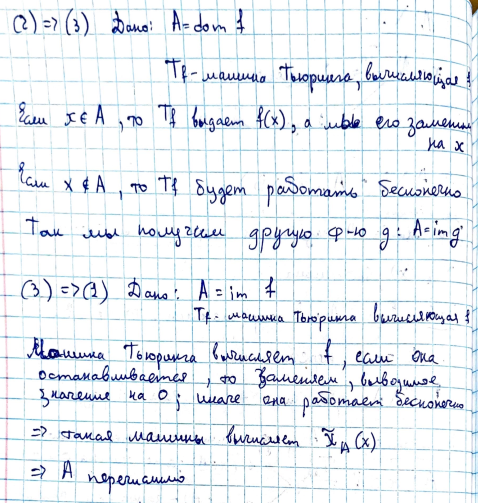 (2) => (3) Дано: A = dom f
Tf - машина Тьюринга, вычисляющая f
Если x ∈ A, то Tf выдает f(x), а мы его заменим
на x
Если x ∉ A, то Tf будет работать бесконечно
Так мы получим другую ф-ю g: A = im g
(3) => (1) Дано: A = im f
Tf - машина Тьюринга вычисляющая f
Машина Тьюринга вычисляет f, если она
останавливается, то заменяем, выводимое
значение на 0; иначе она работает бесконечно
=> такая машины вычисляет χ̃A(x)
=> A перечислимо